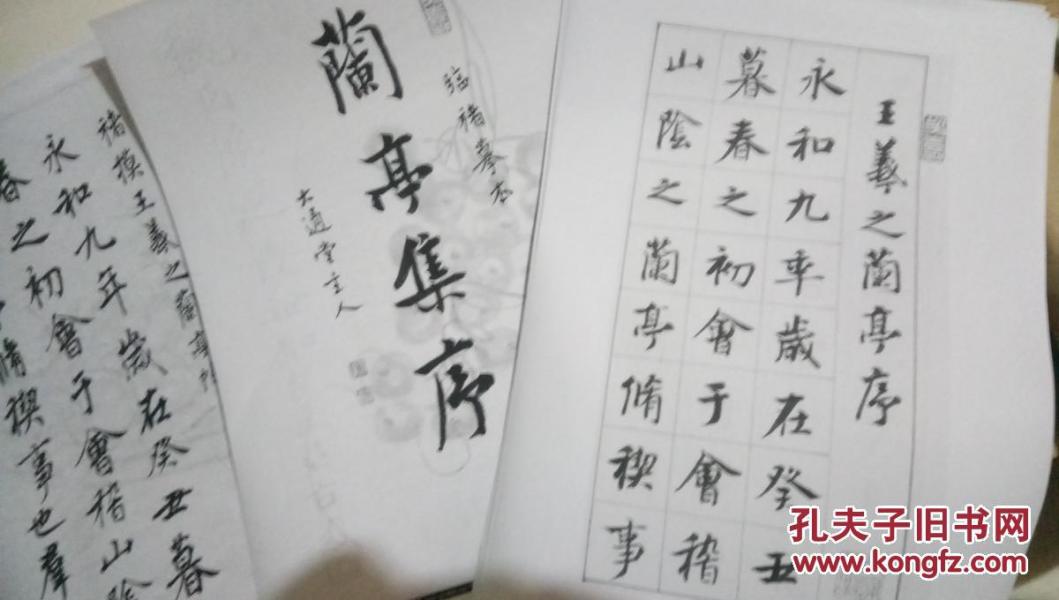 王羲之蘭亭序
永和九年歲在癸丑
暮春之初會于會稽
山陰之蘭亭脩稧事
臨褚摹本
蘭亭集序
大通堂主人
褚摸王羲之蘭亭
永和九年歲在癸丑暮
春之初會于會稽山陰
脩稧事也羣
孔夫子旧书网
www.kongfz.com